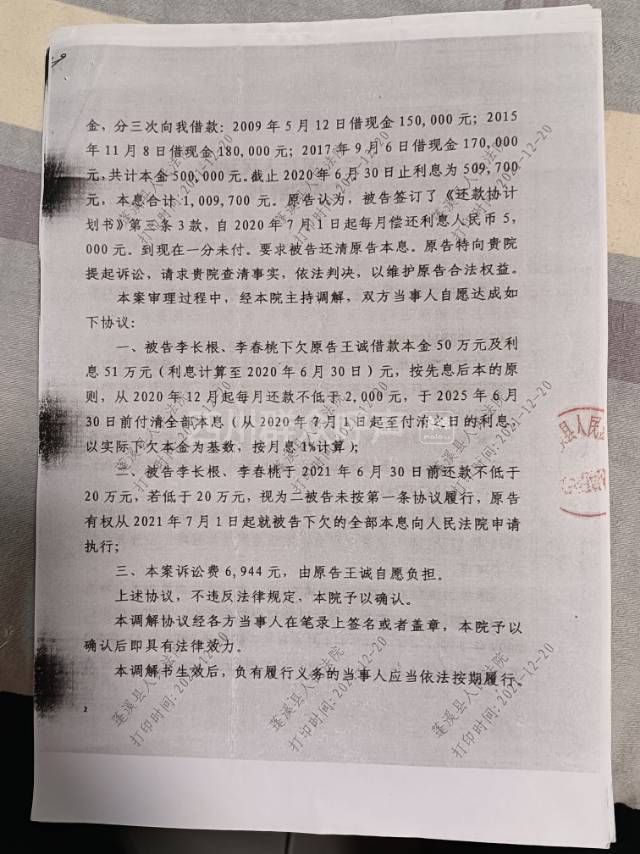 金，分三次向我借款：2009年5月12日借现金150,000元；2015
年11月8日借现金180,000元；2017年9月6日借现金170,000
元，共计本金500,000元。截止2020年6月30日止利息为509,700
元，本息合计1,009,700元。原告认为，被告签订了《还款协计
划书》第三条3款，自2020年7月1日起每月偿还利息人民币5,
000元。到现在一分未付。要求被告还清原告本息。原告特向贵院
提起诉讼，请求贵院查清事实，依法判决，以维护原告合法权益。
本案审理过程中，经本院主持调解，双方当事人自愿达成如
下协议：
一、被告李长根、李春桃下欠原告王诚借款本金50万元及利
息51万元（利息计算至2020年6月30日）元，按先息后本的原
则，从2020年12月起每月还款不低于2,000元，于2025年6月
30日前付清全部本息（从2020年7月1日起至付清之日的利息，
以实际下欠本金为基数，按月息1%计算）；
二、被告李长根、李春桃于2021年6月30日前还款不低于
20万元，若低于20万元，视为二被告未按第一条协议履行，原告
有权从2021年7月1日起就被告下欠的全部本息向人民法院申请
执行；
三、本案诉讼费6,944元，由原告王诚自愿负担。
上述协议，不违反法律规定，本院予以确认。
本调解协议经各方当事人在笔录上签名或者盖章，本院予以
确认后即具有法律效力。
本调解书生效后，负有履行义务的当事人应当依法按期履行。
2
蓬溪县人民法院
打印时间：2021-12-20
县人民